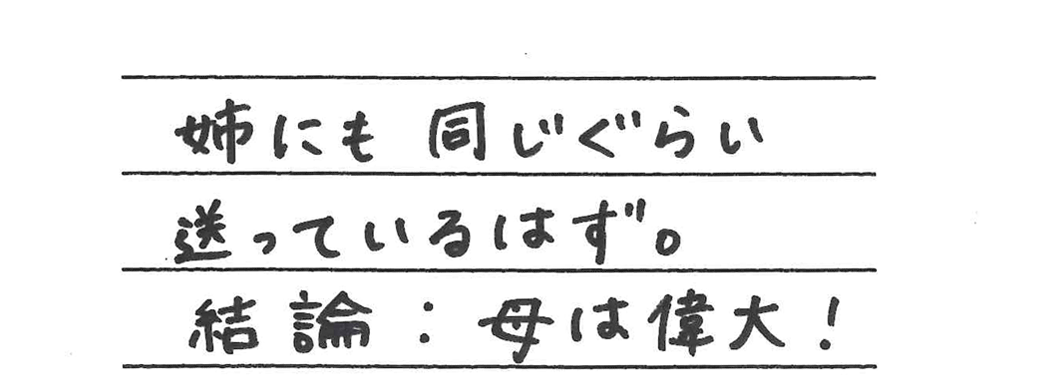 姉にも同じぐらい
送っているはず。
結論：母は偉大！